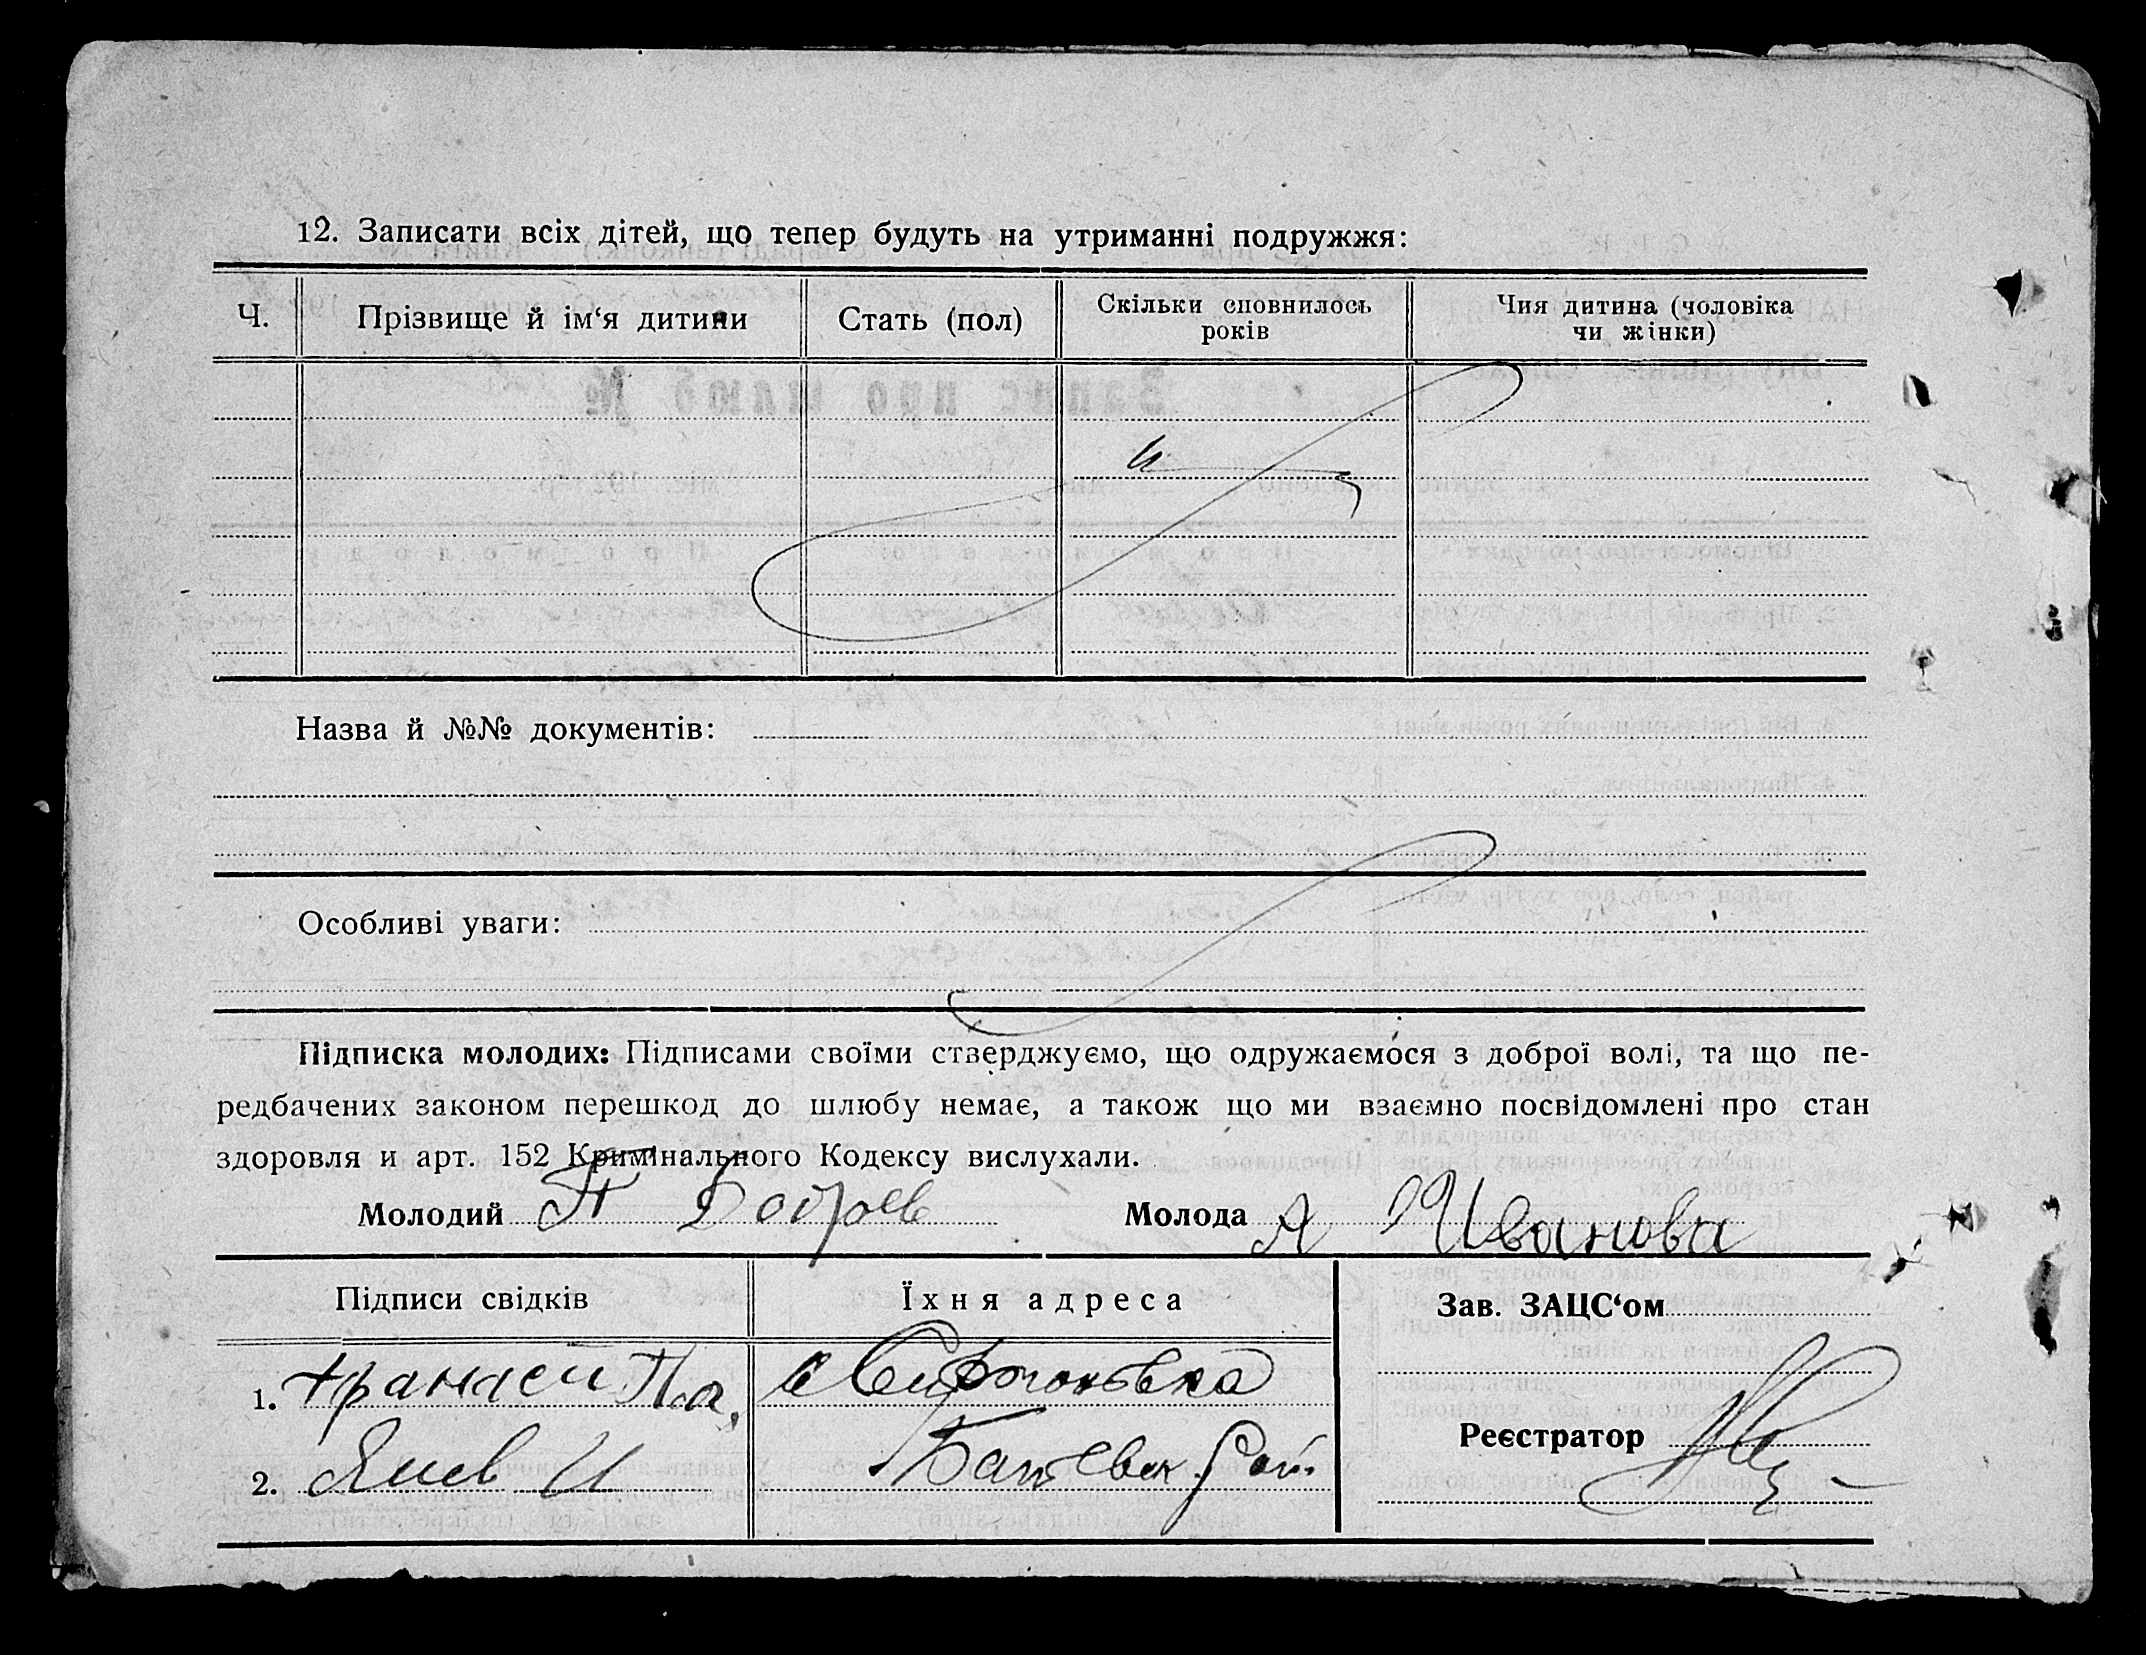 12. Записати всіх дітей, що тепер будуть на утриманні подружжя:
Ч.
Прізвище й ім‘я дитини
Стать (пол)
Скільки сповнилось
років
Чия дитина (чоловіка
чи жінки)
Назва й №№ документів:
Особливі уваги:
Підписка молодих: Підписами своїми стверджуємо, що одружаємося з доброї волі, та що пе-
редбачених законом перешкод до шлюбу немає, а також що ми взаємно посвідомлені про стан
здоровля и арт. 152 Кримінального Кодексу вислухали.
Молодий П Бобров Молода А Иванова
Підписи свідків
Їхня адреса
Зав. ЗАЦС‘ом
1.
Реєстратор
2. Янев И